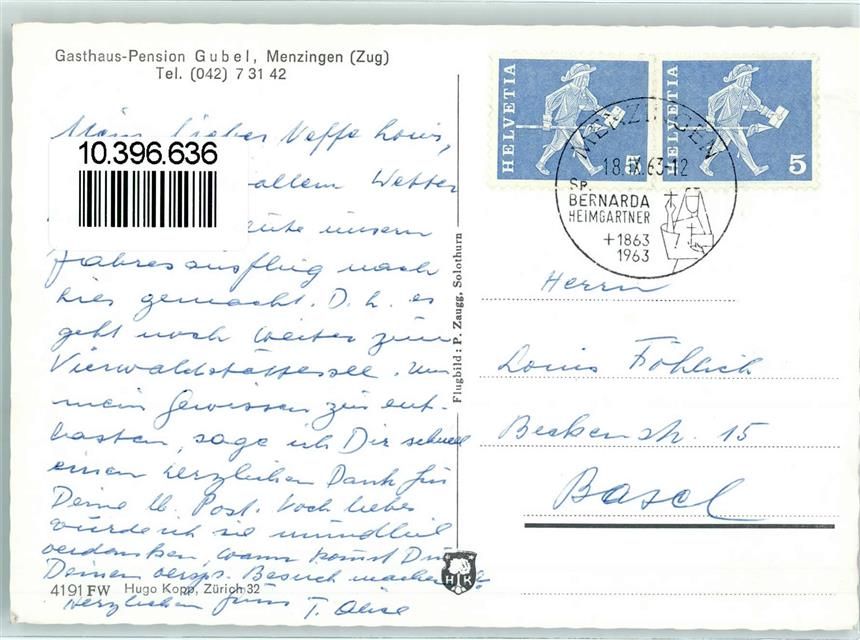 Gasthaus-Pension Gubel, Menzingen (Zug)
Tel. (042) 7 31 42
Mein lieber Neffe Louis,
10.396.636
allem Wetter
heute unsern
Jahresausflug nach
hier gemacht. D. h. es
geht noch weiter zum
Vierwaldstättersee. Um
mein Gewissen zu ent-
lasten, sage ich Dir schnell
einen herzlichen Dank für
Deine lb. Post. Noch lieber
würde ich sie mündlich
verdanken, wann kommst Du
Deinen versp. Besuch machen
Herzlichen T. Alice
4191 FW Hugo Kopp, Zürich 32
Flugbild: P. Zaugg, Solothurn
HK
HELVETIA 5
HELVETIA 5
MENZINGEN
18.IX.63-12
Sr.
BERNARDA
HEIMGARTNER
+1863
1963
Herrn
Louis Föhlich
Beckenstr. 15
Basel